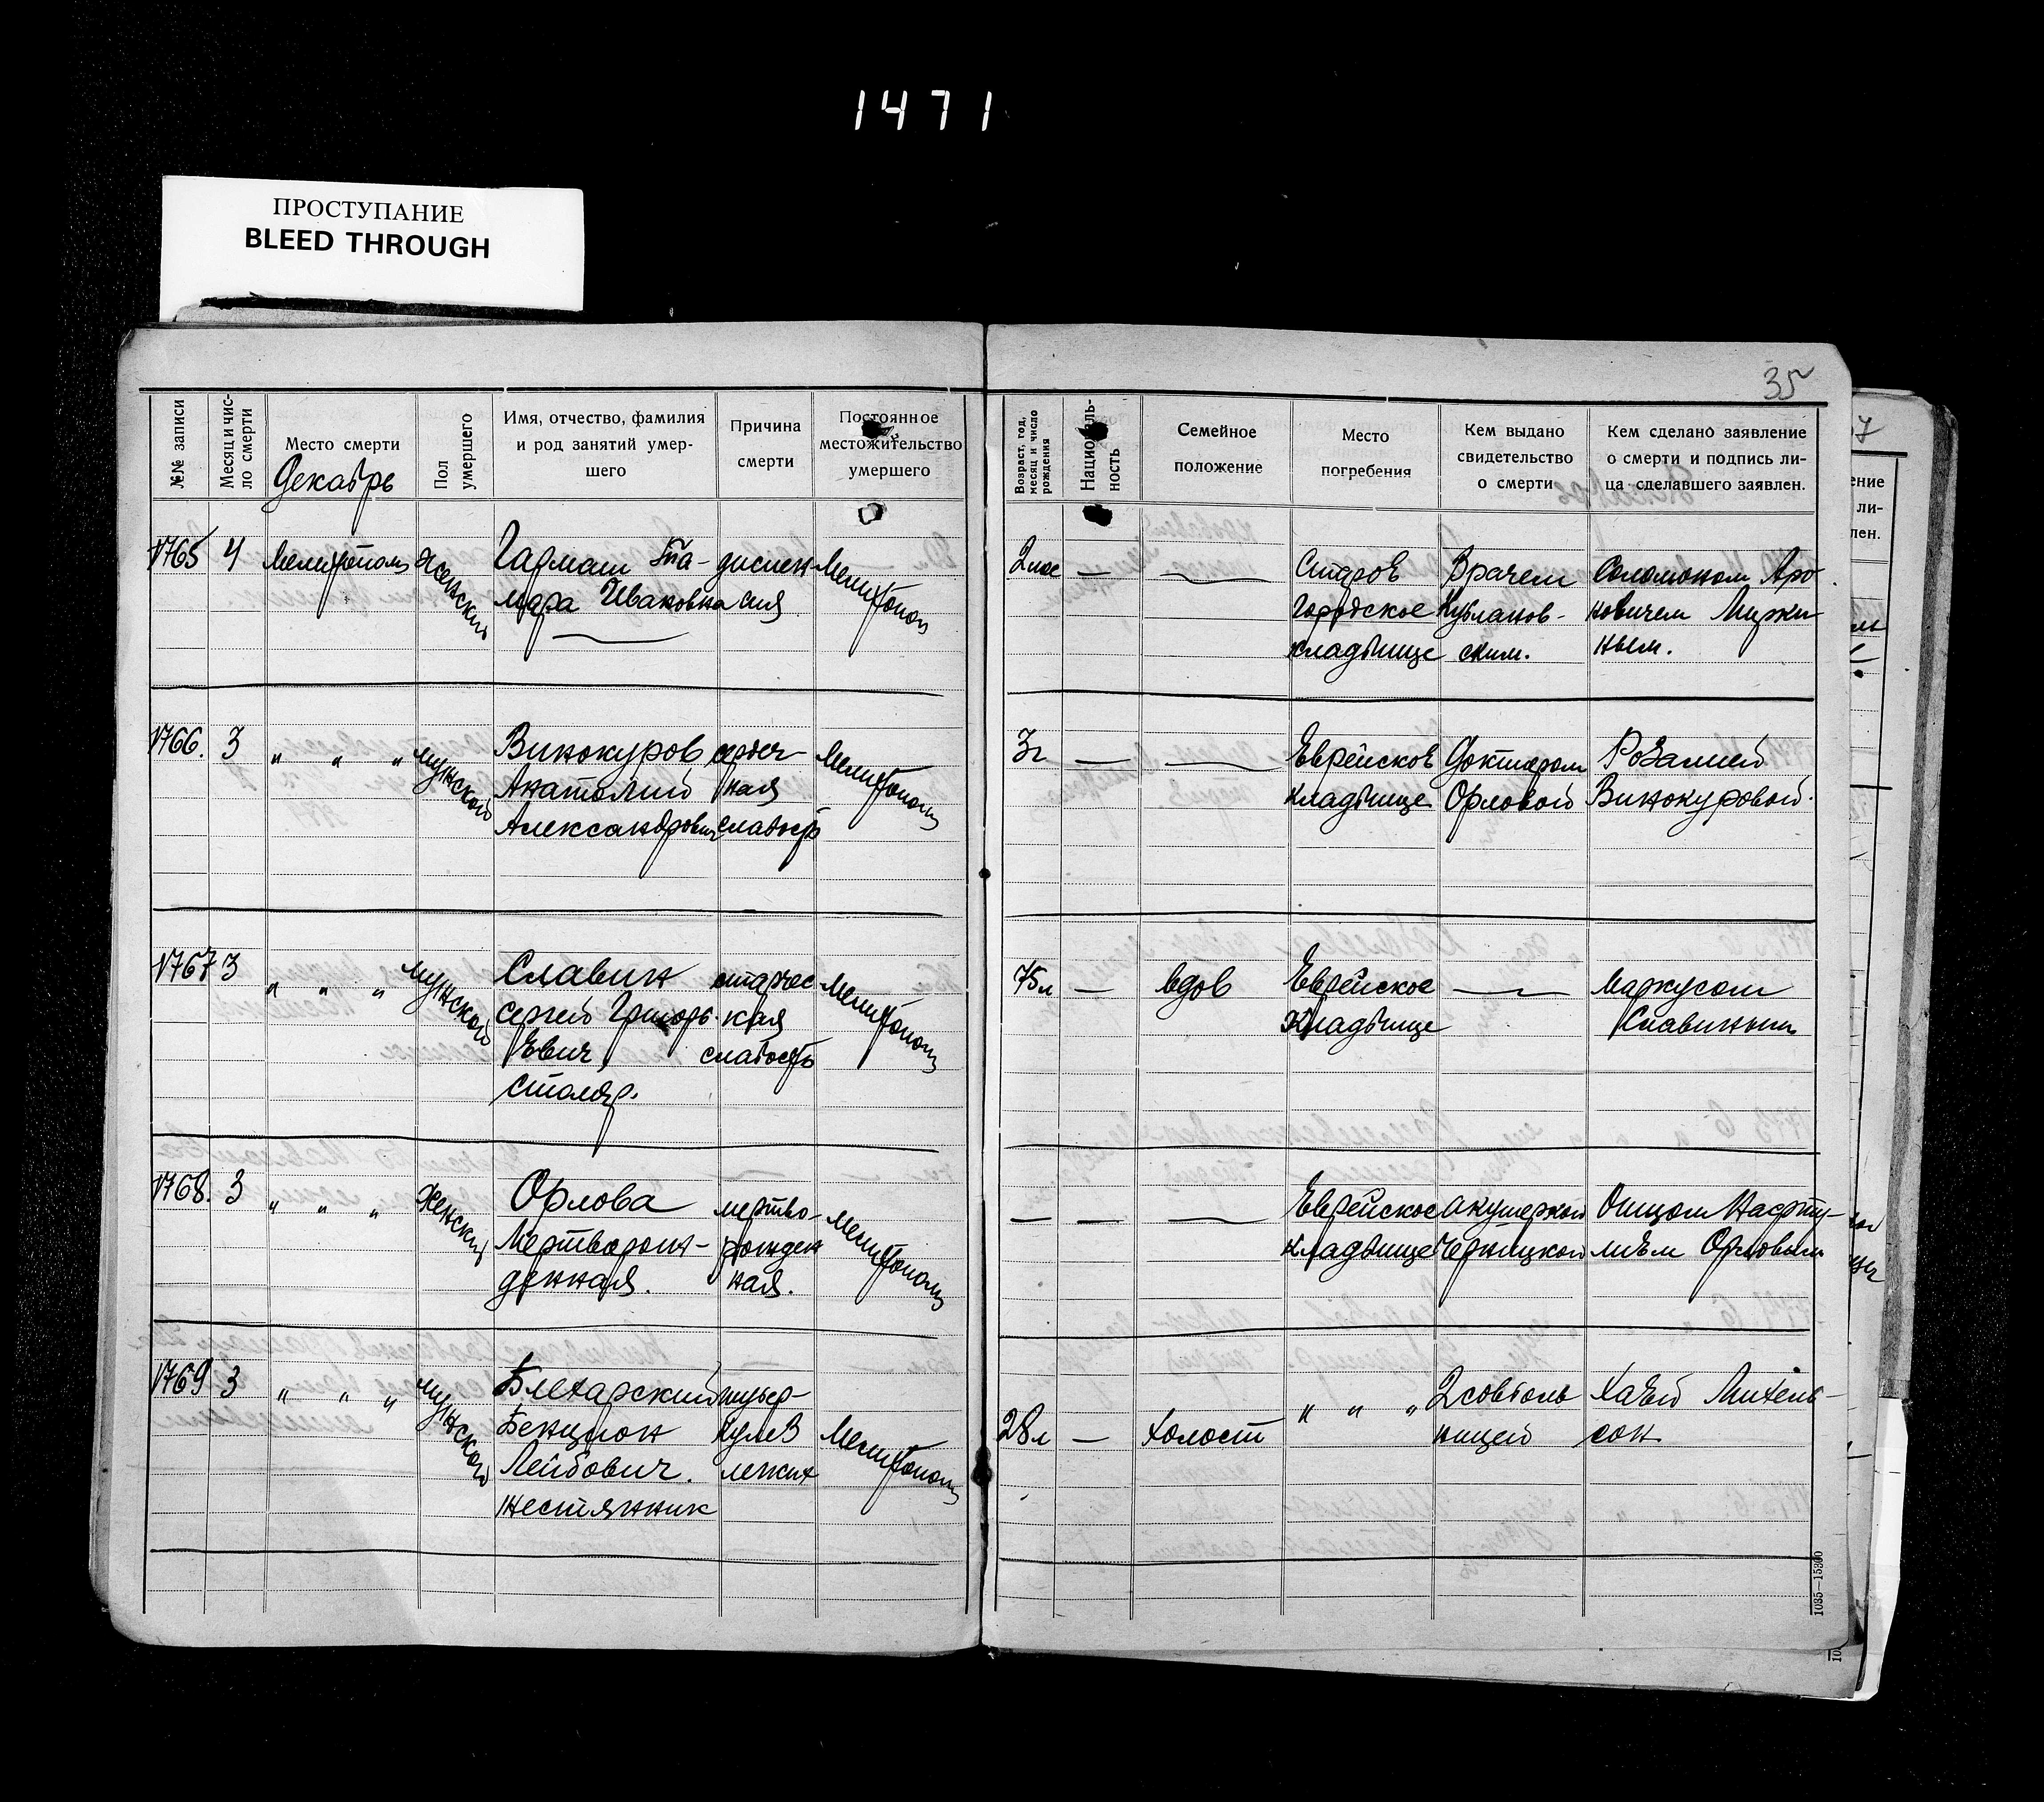 1471
ПРОСТУПАНИЕ
BLEED THROUGH
35
№№ записи
Месяц и чис-
ло смерти
Место смерти
Декабрь
Пол
умершего
Имя, отчество, фамилия
и род занятий умер-
шего
Причина
смерти
Постоянное
местожительство
умершего
Возраст, год,
месяц и число
рождения
Националь-
ность
Семейное
положение
Место
погребения
Кем выдано
свидетельство
о смерти
Кем сделано заявление
о смерти и подпись ли-
ца сделавшего заявлен.
1765 4 Мелитополь Женский
Гармаш Та-
мара Ивановна
диспеп-
сия
Мелитополь
2 мес — —
Старов
Городское
кладбище
Врачем
Кубланов-
ским.
Соломоном Аро
новичем Мирки
ным.
1766. 3 " " " мужской
Винокуров
Анатолий
Александрович
сердеч-
ная
слабость
Мелитополь
3г — —
Еврейское
кладбище
Доктором
Орловой
Розалией
Винокуровой.
1767 3 " " " мужской
Славин
Сергей Григорь-
Евич
столяр.
старчес
кая
слабость
Мелитополь
75л — вдов
Еврейское
Кладбище
—
Маркусом
Славиным
1768. 3 " " " Женский
Орлова
Мертворож-
денная.
мертво-
рожден
ная.
Мелитополь
— — —
Еврейское
кладбище
акушеркой
Черницкой
Отцом Нафту-
лиЕм Орловым
1769 3 " " " мужской
Блехарский
Бенцион
Лейбович.
Жестянник
тубер-
кулез
легких
Мелитополь
28л — Холост
" " "
2 совболь
ницей
ХаЕй Михель-
сон
1035—15300
ение
ли-
лен.